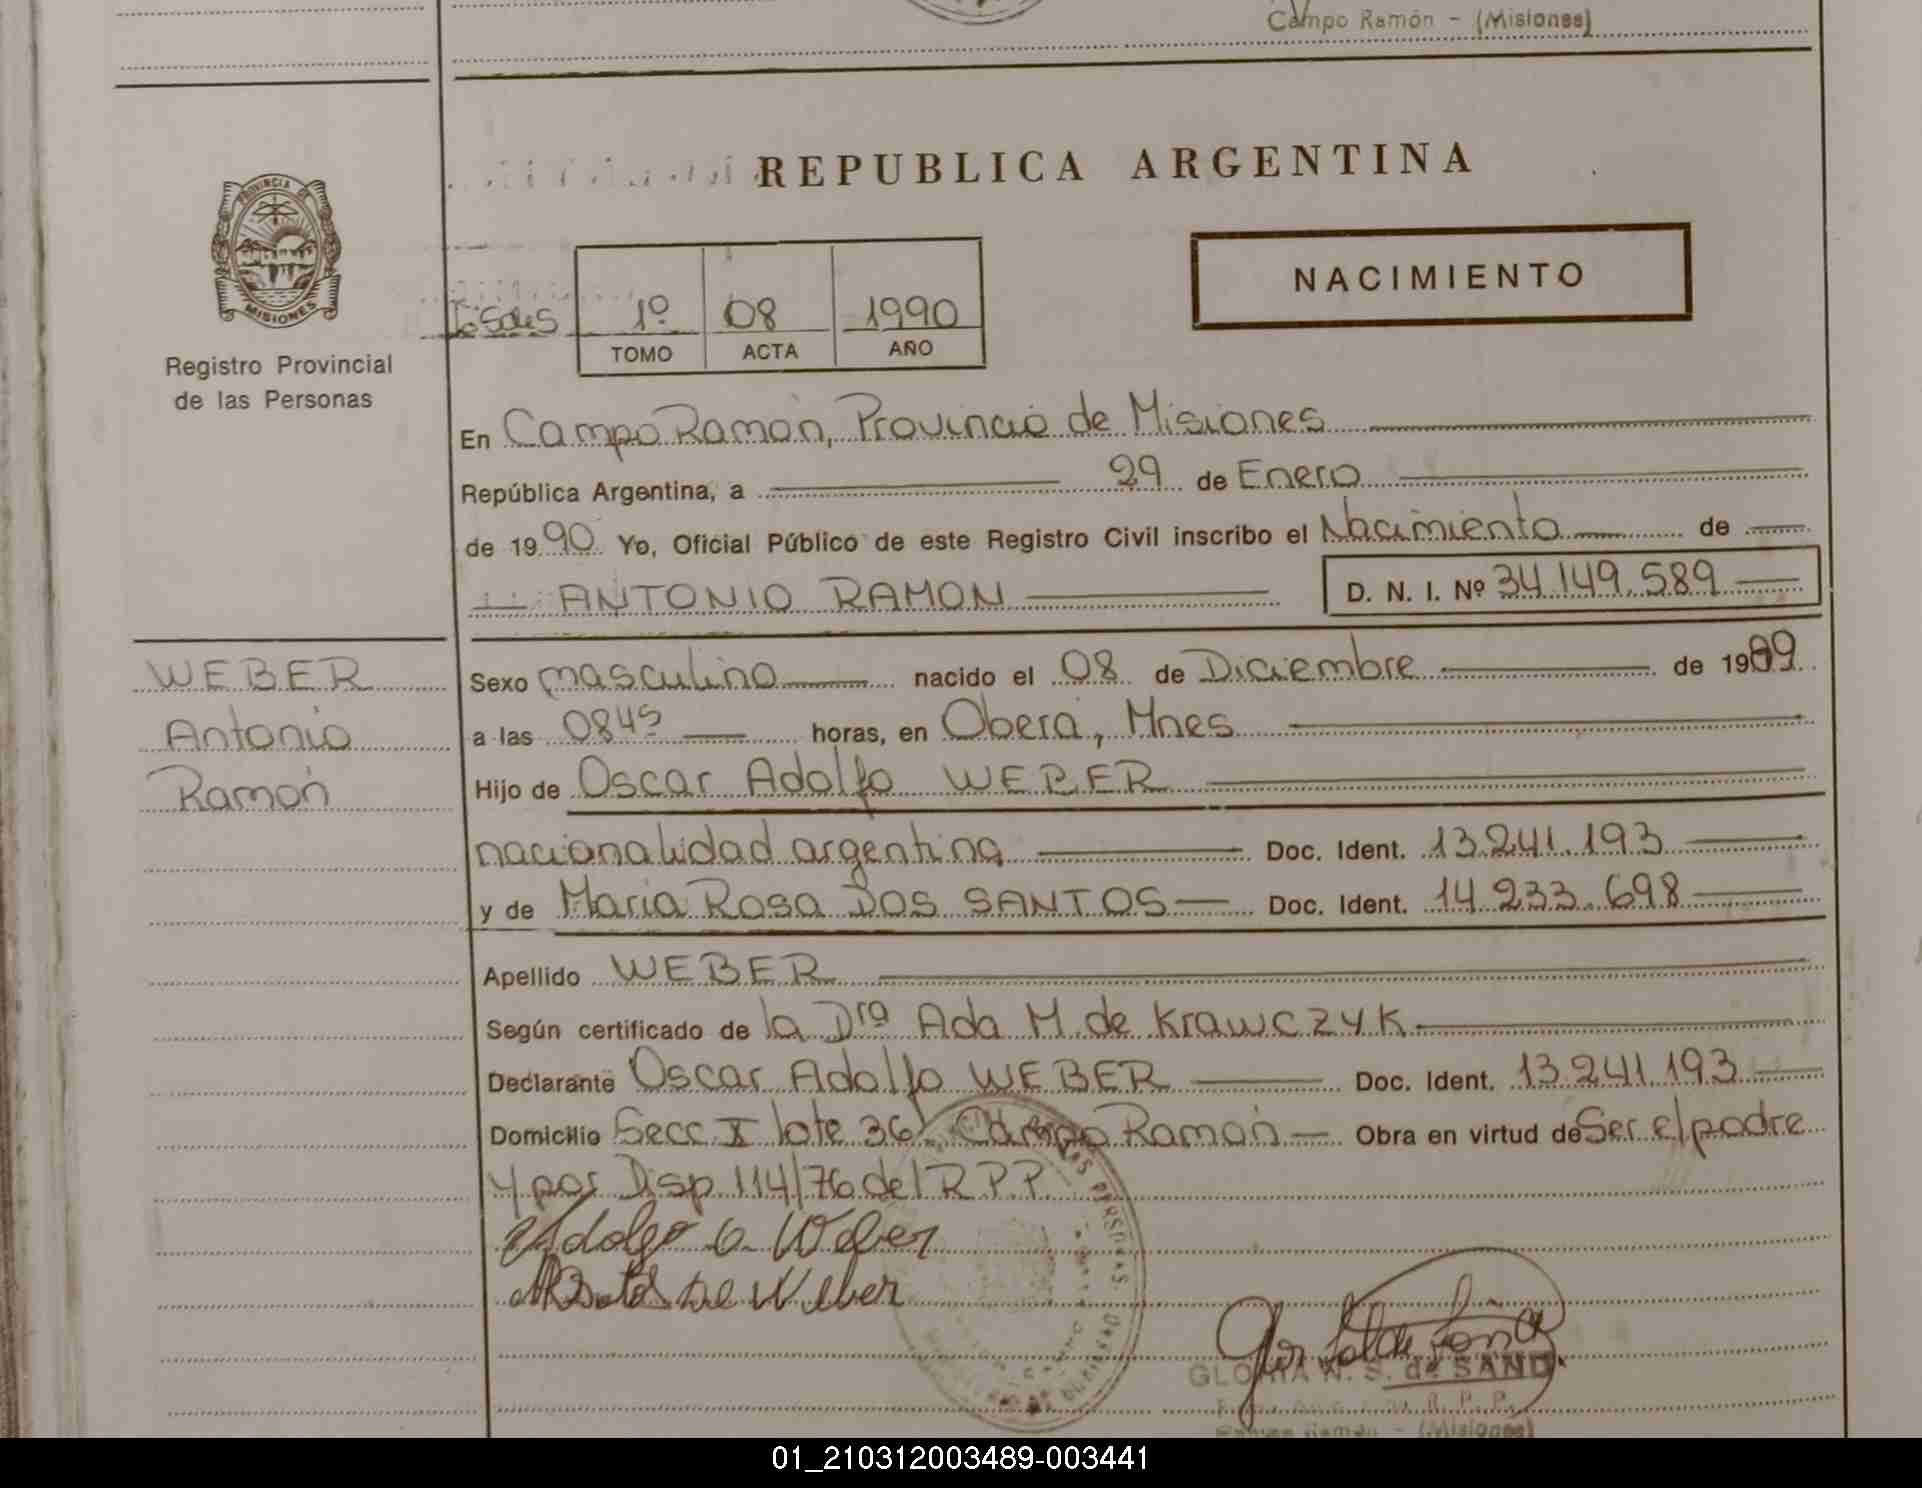 Campo Ramón - (Misiones)
REPUBLICA ARGENTINA
PROVINCIA DE
MISIONES
Registro Provincial
de las Personas
1º 08 1990
TOMO ACTA AÑO
NACIMIENTO
En Campo Ramón, Provincia de Misiones
República Argentina, a 29 de Enero
de 1990 Yo, Oficial Público de este Registro Civil inscribo el Nacimiento de
ANTONIO RAMON D. N. I. Nº 34.149.589
WEBER
Antonio
Ramón
Sexo masculino nacido el 08 de Diciembre de 1989
a las 0845 horas, en Obera, Mnes
Hijo de Oscar Adolfo WEBER
nacionalidad argentina Doc. Ident. 13.241.193
y de Maria Rosa DOS SANTOS Doc. Ident. 14.233.698
Apellido WEBER
Según certificado de la Dra Ada M. de Krawczyk
Declarante Oscar Adolfo WEBER Doc. Ident. 13.241.193
Domicilio Secc X lote 36 Campo Ramón Obra en virtud de Ser el padre
y por Disp. 114/76 del R.P.P.
Adolfo O. Weber
de Weber
GLORIA N. S. de
R. P. P.
Ramón - (Misiones)
01_210312003489-003441